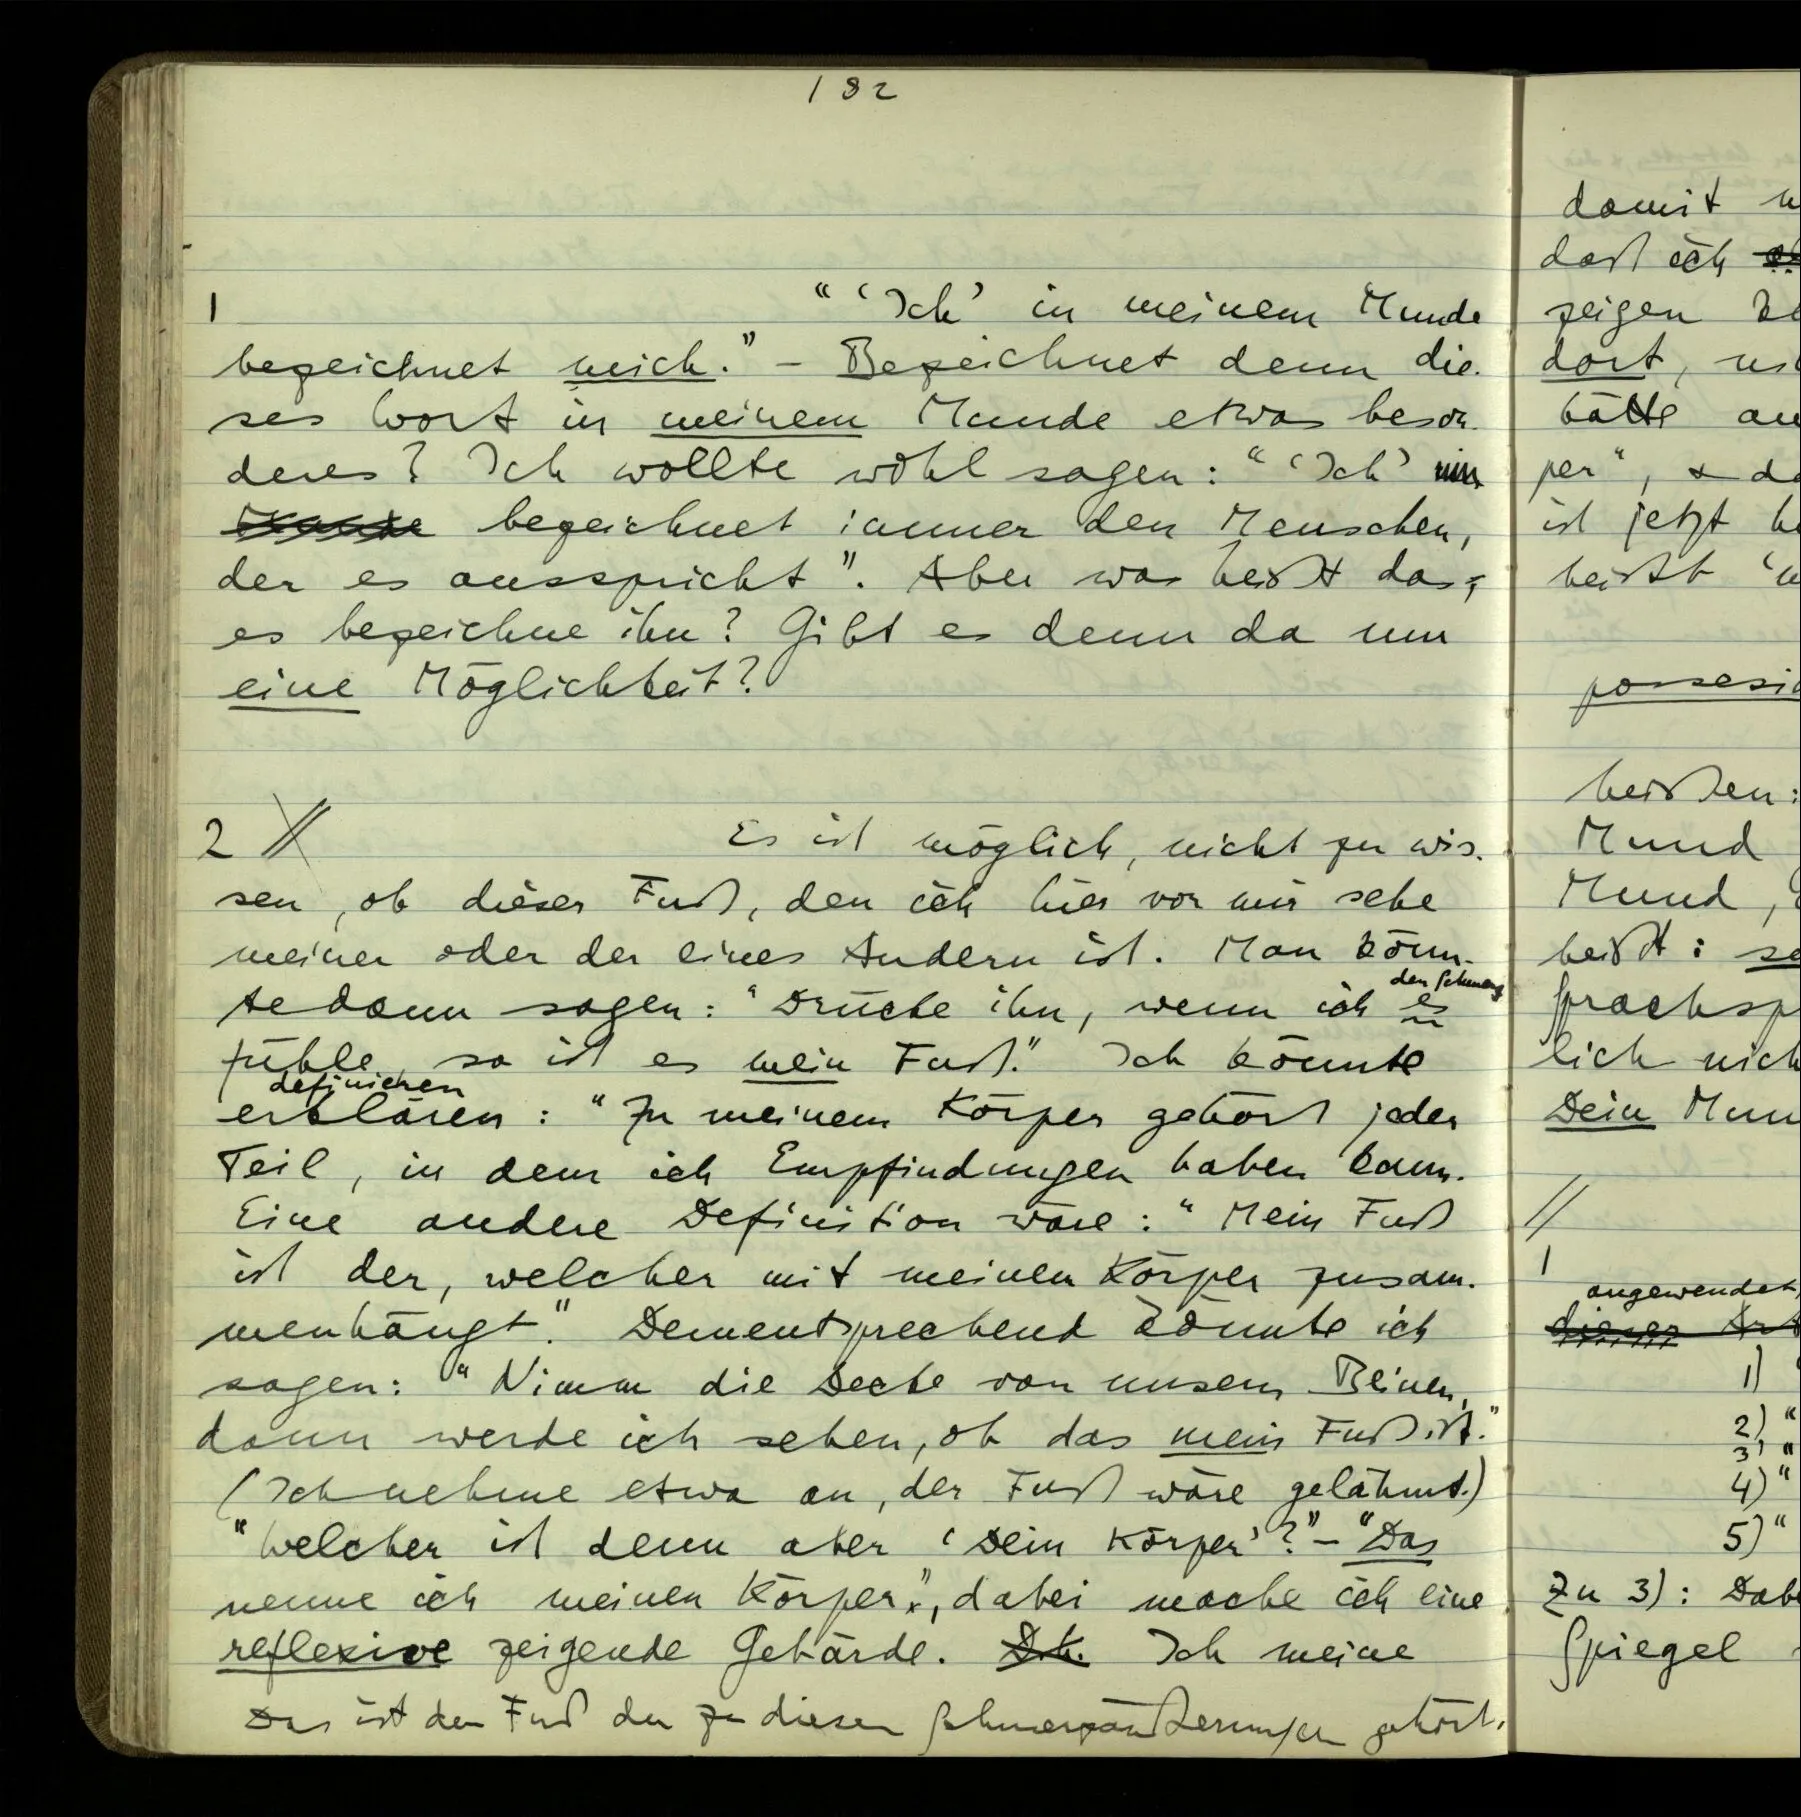 182
1 “ ‘Ich’ in meinem Munde
bezeichnet mich.” – Bezeichnet denn die-
ses Wort in meinem Munde etwas beson-
deres? Ich wollte wohl sagen: “ ‘Ich’
bezeichnet immer den Menschen,
der es ausspricht”. Aber was heißt das,
es bezeichne ihn? Gibt es denn da nur
eine Möglichkeit?
2 Es ist möglich, nicht zu wis-
sen, ob dieser Fuß, den ich hier vor mir sehe
meiner oder der eines Andern ist. Man könn-
den Schmerz
te dann sagen: “Drücke ihn, wenn ich es
fühle, so ist es mein Fuß.” Ich könnte
definieren
erklären: “Zu meinem Körper gehört jeder
Teil, in dem ich Empfindungen haben kann.
Eine andere Definition wäre: “Mein Fuß
ist der, welcher mit meinem Körper zusam-
menhängt.” Dementsprechend könnte ich
sagen: “Nimm die Decke von unsern Beinen,
dann werde ich sehen, ob das mein Fuß ist.”
(Ich nehme etwa an, der Fuß wäre gelähmt.)
“Welcher ist denn aber ‘Dein Körper’?” – “Das
nenne ich meinen Körper”, dabei mache ich eine
reflexive zeigende Gebärde. D.h. Ich meine
Das ist der Fuß der zu diesen Schmerzäußerungen gehört.
damit
daß ich
zeigen
dort,
hätte
per”, &
ist jetzt
heißt
heißen:
Mund
Mund,
heißt:
lich
Dein
//
1
angewendet,
dieser
1)
2) “
3) “
4) “
5) “
Zu 3):
Spiegel